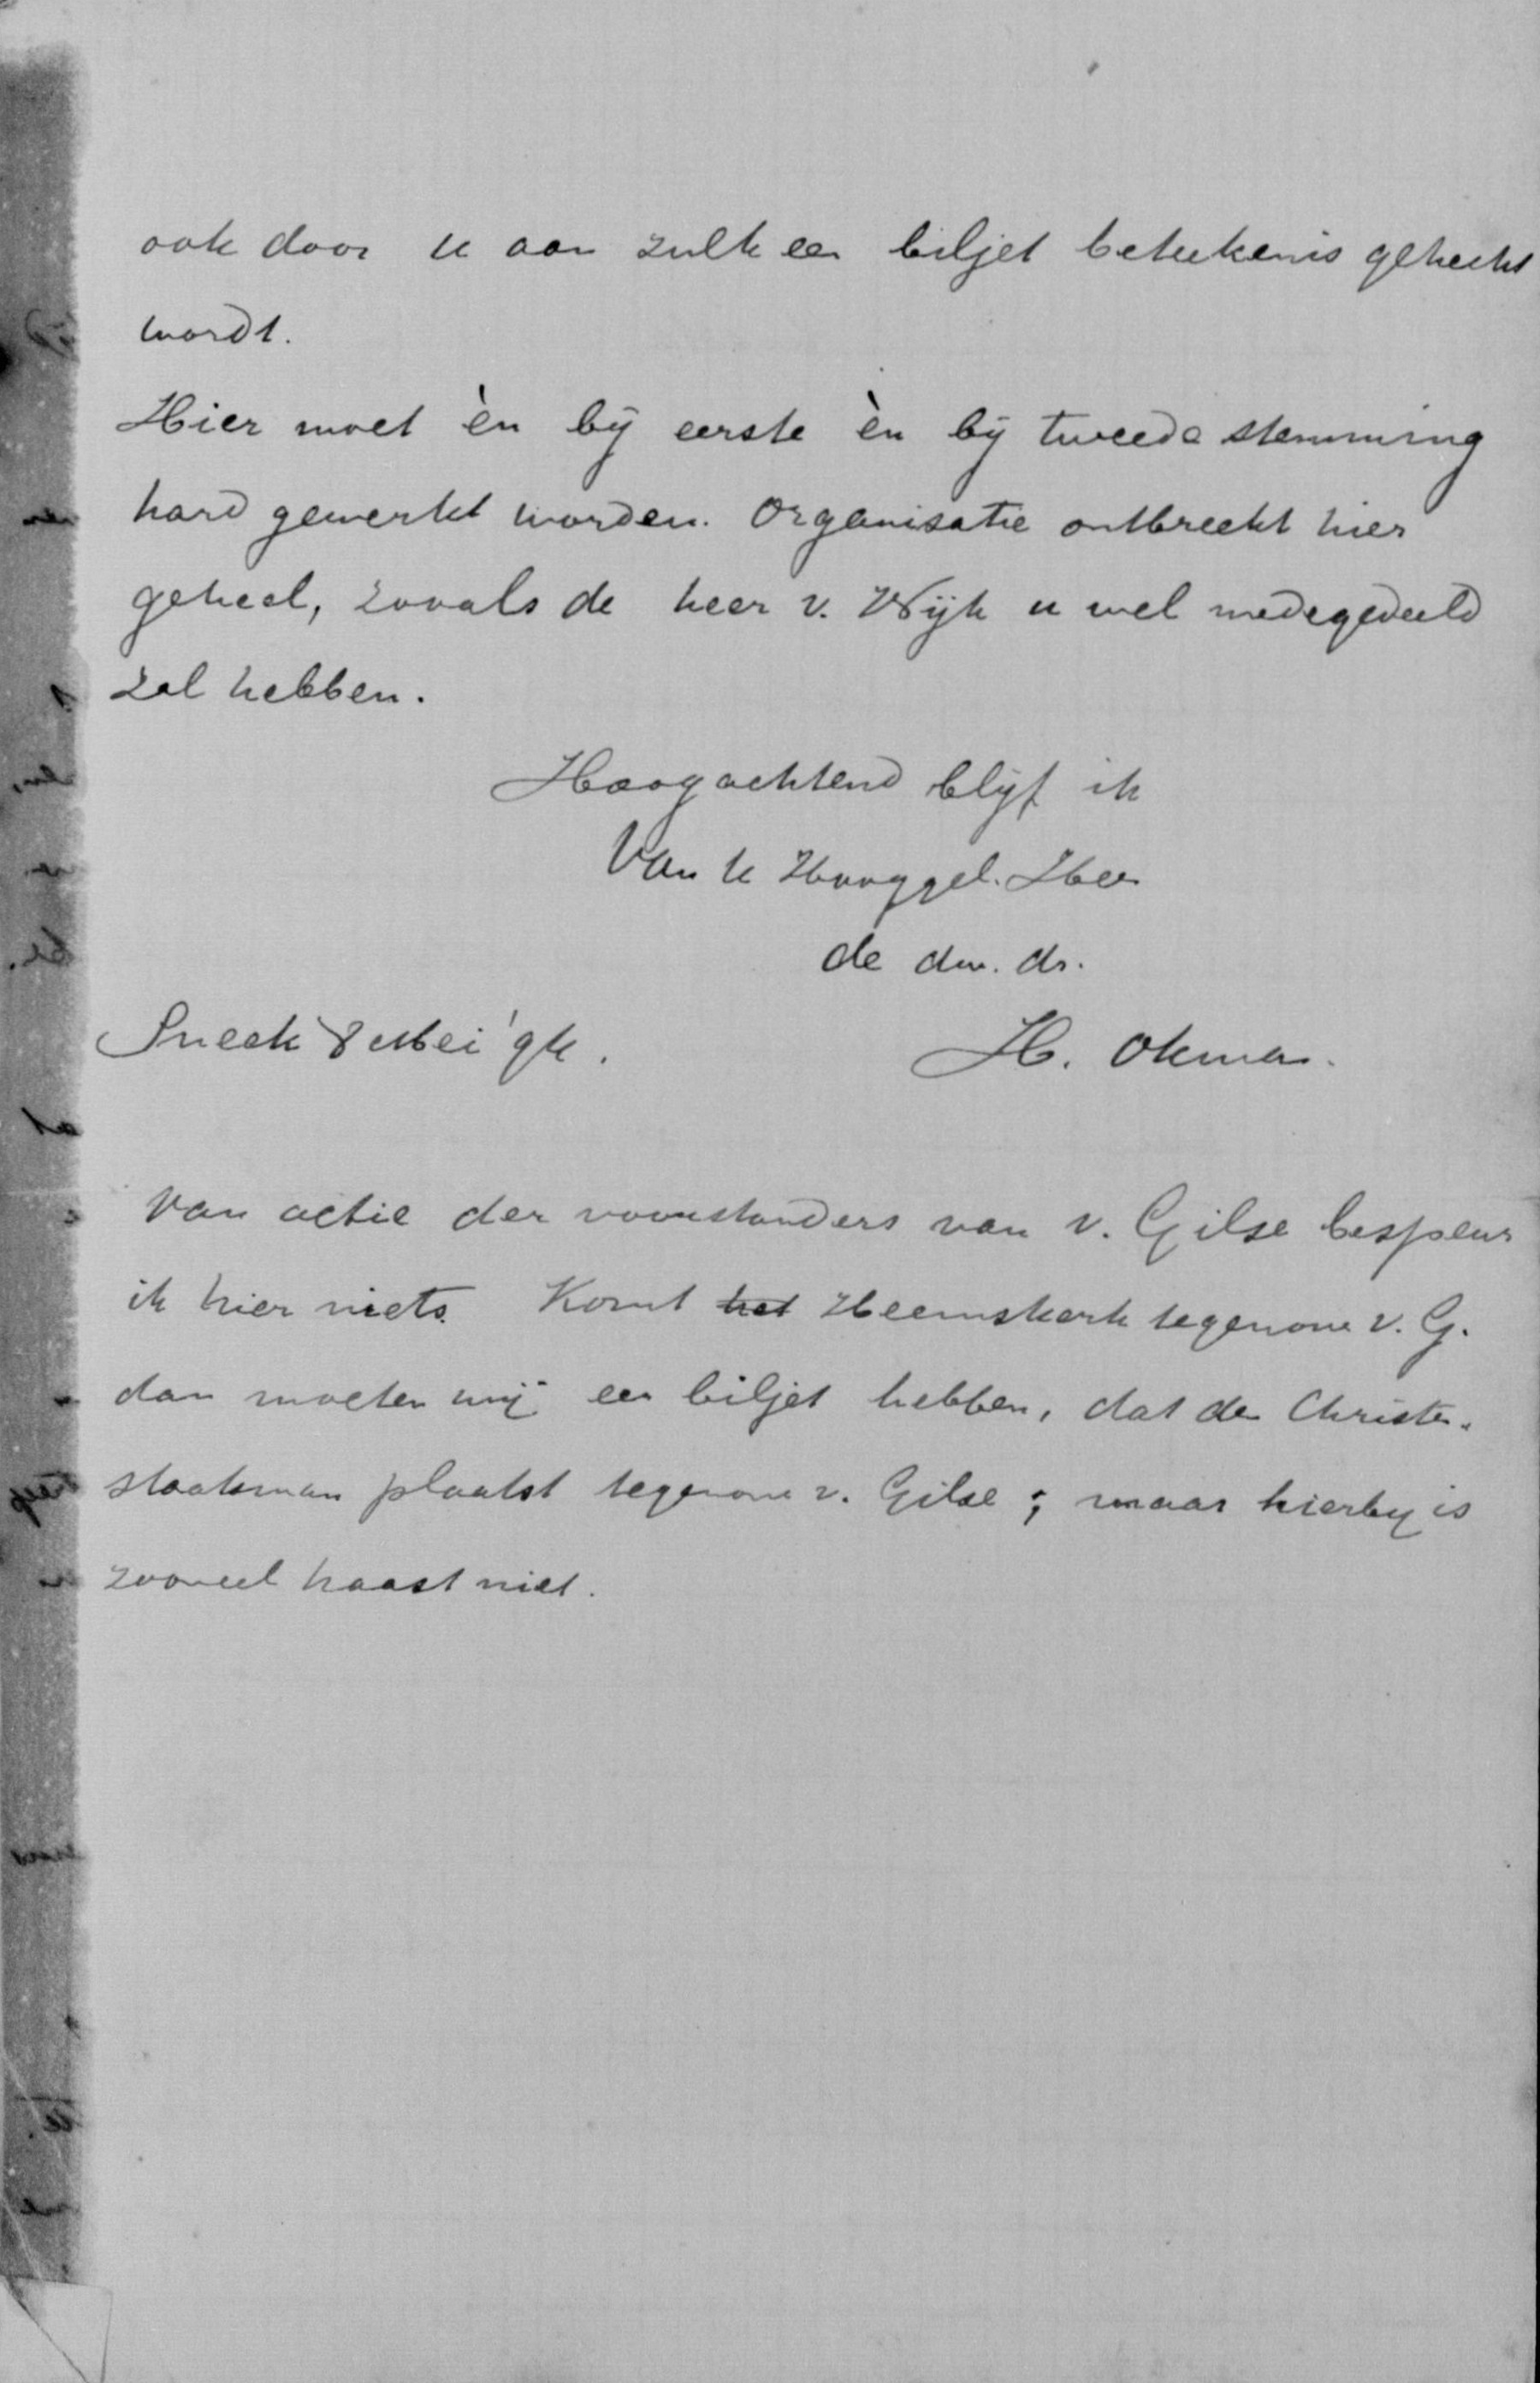 ook door U aan zulk een biljet beteekenis gehecht
wordt.
Hier moet èn bij eerste èn bij tweede stemming
hard gewerkt worden. Organisatie ontbreekt hier
geheel, zooals de heer v. Wijk u wel medegedeeld
zal hebben.
Hoogachtend blijf ik
Van U Hooggel. Heer
de dw. dr.
Sneek 8 Mei '94.
H. Okma.
Van actie der voorstanders van v. Gilse bespeur
ik hier niets. Komt het Heemskerk tegenover v. G.
dan moeten wij een biljet hebben, dat den Christen-
staatsman plaatst tegenover v. Gilse; maar hierbij is
zooveel haast niet.